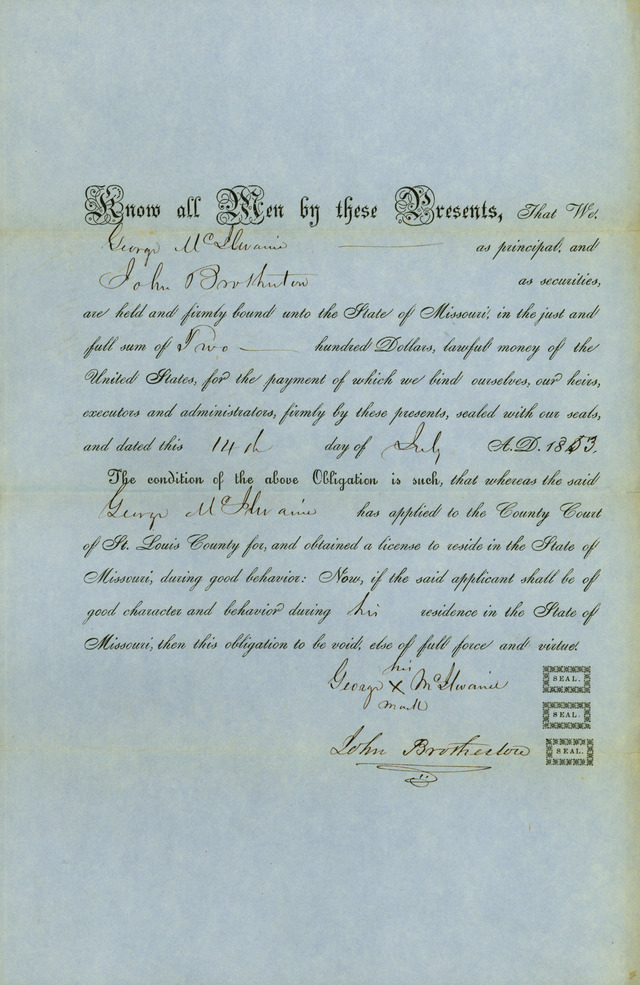 Know all Men by these Presents, That We,
George McIlwaine as principal, and
John Brotherton as securities,
are held and firmly bound unto the State of Missouri, in the just and
full sum of Two hundred Dollars, lawful money of the
United States, for the payment of which we bind ourselves, our heirs,
executors and administrators, firmly by these presents, sealed with our seals,
and dated this 14th day of July A.D. 1853.
The condition of the above Obligation is such, that whereas the said
George McIlwaine has applied to the County Court
of St. Louis County for, and obtained a license to reside in the State of
Missouri, during good behavior: Now, if the said applicant shall be of
good character and behavior during his residence in the State of
Missouri, then this obligation to be void, else of full force and virtue.
his
George X McIlwaine SEAL.
mark
SEAL.
John Brotherton SEAL.